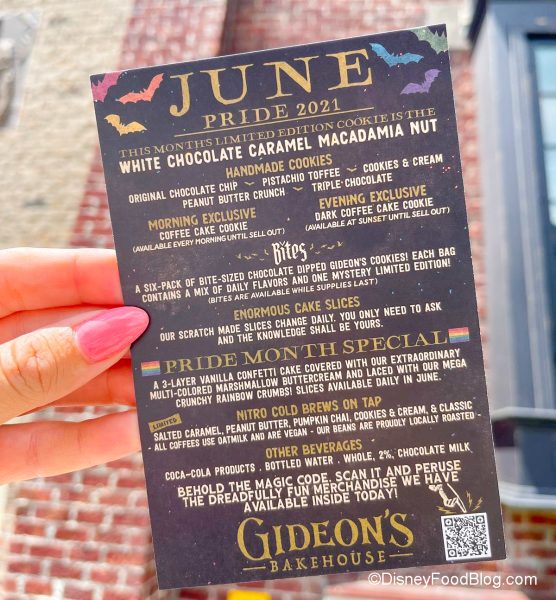 JUNE
PRIDE 2021
THIS MONTH'S LIMITED EDITION COOKIE IS THE
WHITE CHOCOLATE CARAMEL MACADAMIA NUT
HANDMADE COOKIES
ORIGINAL CHOCOLATE CHIP PISTACHIO TOFFEE COOKIES & CREAM
PEANUT BUTTER CRUNCH TRIPLE CHOCOLATE
MORNING EXCLUSIVE
COFFEE CAKE COOKIE
(AVAILABLE EVERY MORNING UNTIL SELL OUT)
EVENING EXCLUSIVE
DARK COFFEE CAKE COOKIE
(AVAILABLE AT SUNSET UNTIL SELL OUT)
Bites
A SIX-PACK OF BITE-SIZED CHOCOLATE DIPPED GIDEON'S COOKIES! EACH BAG
CONTAINS A MIX OF DAILY FLAVORS AND ONE MYSTERY LIMITED EDITION!
(BITES ARE AVAILABLE WHILE SUPPLIES LAST)
ENORMOUS CAKE SLICES
OUR SCRATCH MADE SLICES CHANGE DAILY. YOU ONLY NEED TO ASK
AND THE KNOWLEDGE SHALL BE YOURS.
PRIDE MONTH SPECIAL
A 3-LAYER VANILLA CONFETTI CAKE COVERED WITH OUR EXTRAORDINARY
MULTI-COLORED MARSHMALLOW BUTTERCREAM AND LACED WITH OUR MEGA
CRUNCHY RAINBOW CRUMBS! SLICES AVAILABLE DAILY IN JUNE.
NITRO COLD BREWS ON TAP
LIMITED
SALTED CARAMEL, PEANUT BUTTER, PUMPKIN CHAI, COOKIES & CREAM, & CLASSIC
- ALL COFFEES USE OATMILK AND ARE VEGAN - OUR BEANS ARE PROUDLY LOCALLY ROASTED -
OTHER BEVERAGES
COCA-COLA PRODUCTS . BOTTLED WATER . WHOLE, 2%, CHOCOLATE MILK
BEHOLD THE MAGIC CODE. SCAN IT AND PERUSE
THE DREADFULLY FUN MERCHANDISE WE HAVE
AVAILABLE INSIDE TODAY!
GIDEON'S
BAKEHOUSE
©DisneyFoodBlog.com